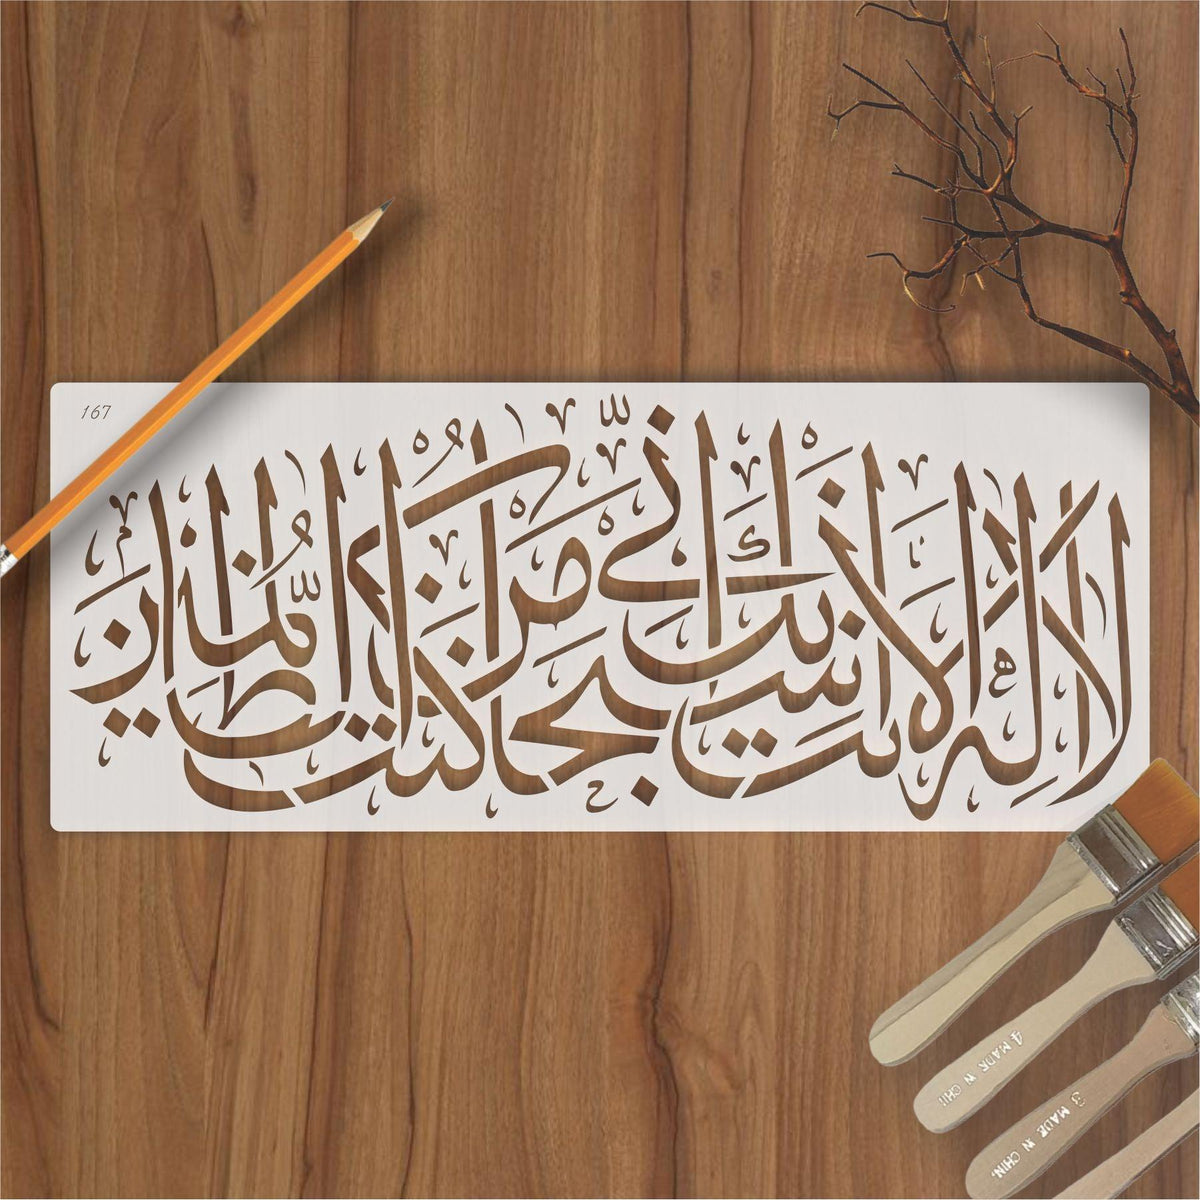 167
لا إله إلا أنت سبحانك إني كنت من الظالمين
4 MADE IN CHI
3 MADE IN CHIN.